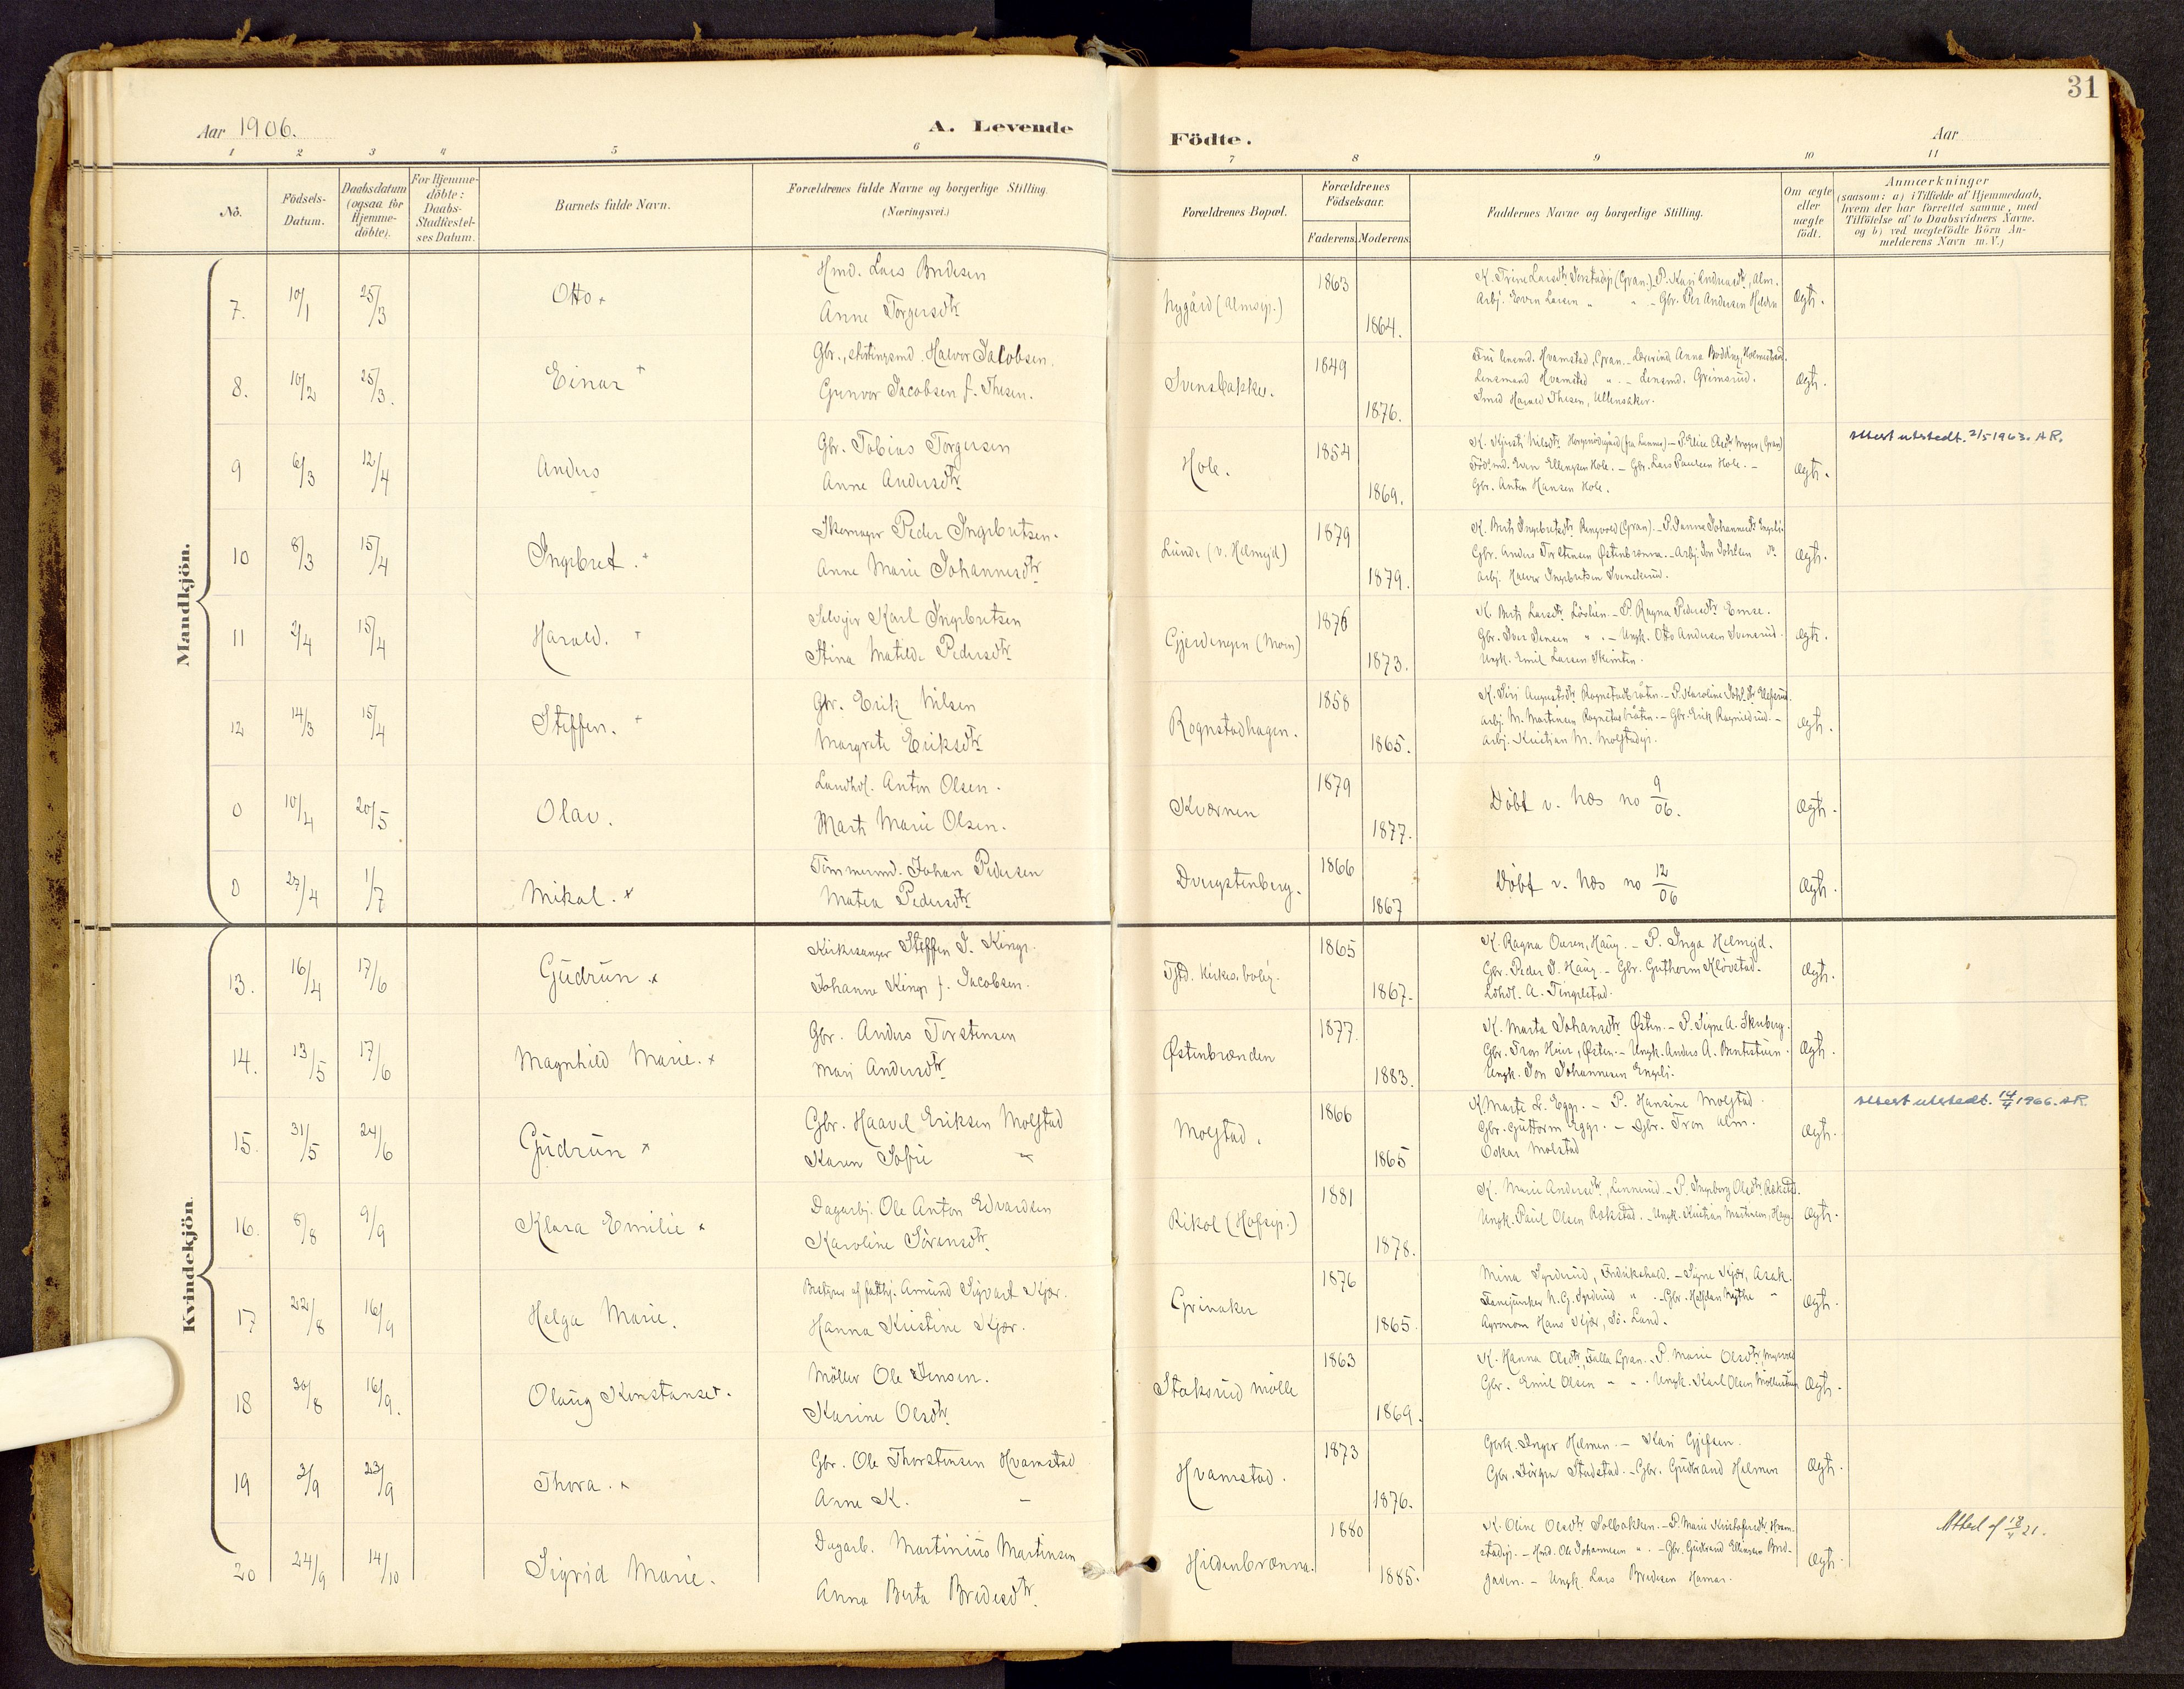 31
Aar 1906.
A. Levende
Födte.
Aar
1 2 3 4 5 6 7 8 9 10 11
Nö.
Födsels-
Datum.
Daabsdatum
(ogsaa for
Hjemme-
döbte).
For Hjemme-
döbte:
Daabs-
Stadfæstel-
ses Datum.
Barnets fulde Navn.
Forældrenes fulde Navne og borgerlige Stilling.
(Næringsvei.)
Forældrenes Bopæl.
Forældrenes
Födselsaar.
Faderens.
Moderens.
Faddernes Navne og borgerlige Stilling.
Om ægte
eller
uægte
födt.
Anmærkninger
(saasom: a) i Tilfælde af Hjemmedaab,
hvem der har forrettet samme, med
Tilföielse af to Daabsvidners Navne.
og b) ved uægtefödte Börn An-
melderens Navn m. V.)
Mandkjön.
7. 10/1 25/3 Otto
Hmd. Lars Bredesen
Anne Torgersdtr
Nygård (Almsej.)
1863
1864.
K. Trine Larsdtr (Gran.) P. Kari Andreasdtr, Alm.
Arbj. Even Larsen " - Gbr. Per Andersen
Ægte.
8. 10/2 25/3. Einar
Gbr., Halvor Jacobsen.
Gunvor Jacobsen f. Thesen.
Svensbakke.
1849
1876.
Hvamstad, Gran. - Lærerinde Anna Bödding, Holmestrand.
Lensmand Hvamstad " - Lensmd. Grimsrud.
Smed Harald Thesen, Ullensaker.
Ægte.
9 6/3 12/4 Anders
Gbr. Tobias Torgersen
Anne Andersdtr
Hole.
1854
1869.
Even Ellingsen Hole. - Gbr. Lars Paulsen Hole. -
Gbr. Anton Hansen Hole.
Ægte.
Attest utstedt. 2/5 1963. AR.
10 8/3 15/4 Ingebret.
Skomager Peder Ingebretsen.
Anne Marie Johannesdtr
Lunde (v. Helmejd)
1879
1879.
K. Berte Ingebretsdtr Ringvold (Gran). - P. Janna Johannesdtr Engeli
Gbr. Anders Torstensen Østenbrænna. - Arbj. Jon Johansen do.
Arbj. Halvor Ingebretsen Svenskerud.
Ægte.
11 2/4 15/4 Harald.
Selvejer Karl Ingebretsen
Stina Matilde Pedersdtr
Gjerdingen (Moen)
1876
1873.
K. Berte Larsdtr Lövlien. - P. Ragna Pedersdtr Emse.
Gbr. Iver Jensen " - Ungk. Otto Andersen Svensrud.
Ungk. Emil Larsen
Ægte.
12 14/3 15/4 Steffen.
Gbr. Erik Nilsen
Margrete Eriksdtr
Rognstadhagen.
1858
1865.
K. Siri Augustsdtr Rognstadbråten. - P. Karoline
Arbj. M. Martinsen Rognstadbråten. - Gbr. Erik Ragnildrud. -
Arbj. Kristian M. Molstadej.
Ægte.
0 10/4 20/5 Olav.
Landhdl. Anton Olsen.
Marte Marie Olsen.
Kværnen
1879
1877.
Döbt v. Næs no 9/06.
Ægte.
0 27/4 1/7 Mikal.
Tömmermd. Johan Pedersen
Matea Pedersdtr
Dvergstenberg.
1866
1867
Döbt v. Næs no 12/06
Ægte.
Kvindekjön.
13. 16/4 17/6 Gudrun
Kirkesanger Steffen J. Kinge.
Johanne Kinge f. Jacobsen.
Tfd. Kirkes. bolig.
1865
1867.
K. Ragna Ouren, Haug. - P. Inga Helmejd.
Gbr. Peder J. Haug. - Gbr. Guthorm Klövstad.
Ldhdl. A. Tingelstad.
Ægte.
14. 13/5 17/6 Magnhild Marie.
Gbr. Anders Torstensen
Mari Andersdtr
Østenbrænden
1877.
1883.
K. Marta Johansdtr Østen. - P. Signe A. Skiaberg.
Gbr. Tron Hvier, Østen. - Ungk. Anders A. Bentestuen.
Ungk. Jon Johannesen Engeli.
Ægte.
15. 31/5 24/6 Gudrun
Gbr. Haavel Eriksen Molstad
Karen Sofie "
Molstad.
1866
1865
K. Marte L. Egge. - P. Hansine Molstad.
Gbr. Guttorm Egge. - Gbr. Tron Alm.
Oskar Molstad
Ægte.
Attest utstedt. 14/4 1966. AR.
16. 8/8 9/9 Klara Emilie
Dagarbj. Ole Anton Edvardsen
Karoline Sörensdtr
Rikol (Hofsejr.)
1881
1878.
K. Marie Andersdtr, Lennerud. - P. Ingeborg Olsdtr Rækstad.
Ungk. Paul Olsen Rækstad. - Ungk. Kristian Martinsen, Haga
Ægte.
17 22/8 16/9 Helga Marie.
Bestyrer af fattiggj. Amund Sigvart Kjær.
Hanna Kristine Kjær.
Grinaker
1876
1865.
Mina Syrdrud, Fredrikshald. - Signe Kjær, Asak.
Fanejunker N. G. Syrdrud " - Gbr. Halfdan Nøttke "
Agronom Hans Kjær, Sö. Land.
Ægte.
18 30/8 16/9. Olaug Konstanse.
Möller Ole Jensen.
Karine Olsdtr
Staksrud mölle
1863
1869.
K. Hanna Olsdtr, Falla Gran. - P. Marie Olsdtr,
Gbr. Emil Olsen " " . Ungk. Karl Olsen Möllerstuen
Ægte.
19 3/9 23/9 Thora.
Gbr. Ole Thorstensen Hvamstad
Anne K. -
Hvamstad.
1873
1876.
Gbrk. Inger Helmen. - Kari Gjefsen.
Gbr. Jörgen Stadstad. - Gbr. Gudbrand Helmen
Ægte.
20 24/9 14/10 Sigrid Marie.
Dagarb. Martinius Martinsen
Anna Berta Bredesdtr.
Hildenbrænna.
1880
1885.
K. Oline Olsdtr Solbakken. - P. Marie Kristofersdtr Hvam-
stadejr. - Hmd. Ole Johannesen ". - Gbr. Gudbrand Ellingsen Bred-
gaden. - Ungk. Lars Bredesen Hamar.
Ægte.
Attest 18/4 21.